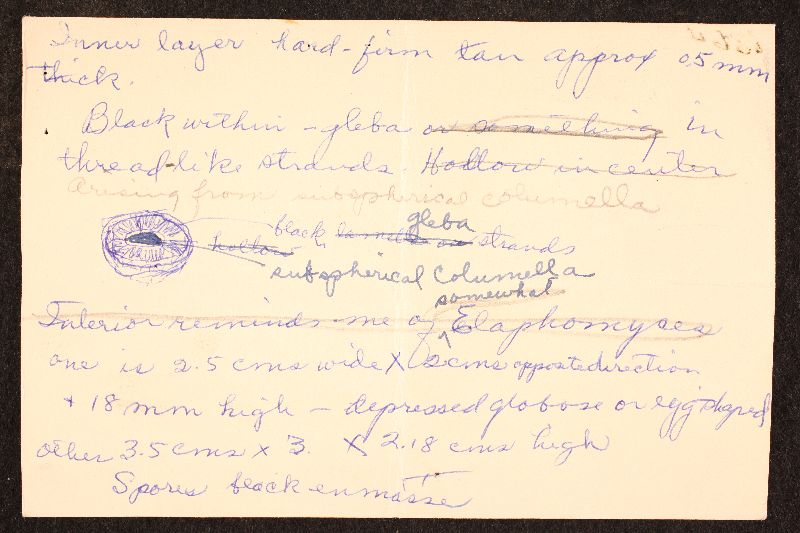 Inner layer hard-firm tan approx 05 mm
thick.
Black within - gleba or something in
threadlike strands. Hollow in center
arising from subspherical columella
gleba
hollow black lamellae or strands
subspherical Columella
somewhat
Interior reminds me of Elaphomyces
one is 2.5 cms wide X 2 cms oppostedirection
+ 18 mm high - depressed globose or egg shaped
other 3.5 cms x 3. X 2.18 cms high
Spores black en masse